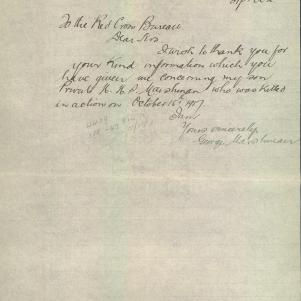 To the Red Cross Bureau
Dear Sirs
I wish to thank you for
your kind information which you
have given me concerning my son
Private
in action on October 1917
I am
Yours sincerely
George
who was killed